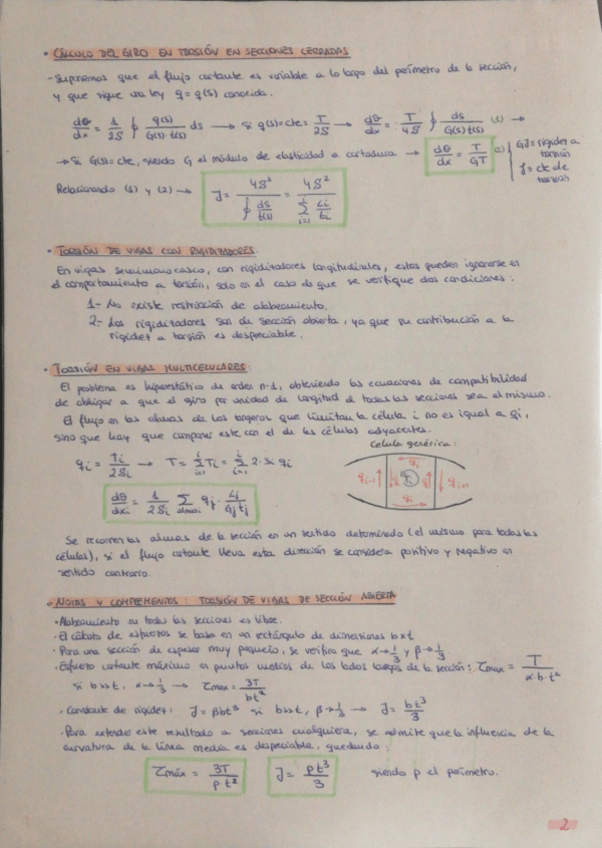 • CÁLCULO DEL GIRO EN TORSIÓN EN SECCIONES CERRADAS
- Suponemos que el flujo cortante es variable a lo largo del perímetro de la sección,
y que sigue una ley q = q(s) conocida.
dθ/dx = 1/2S ∮ q(s)/G(s)·t(s) ds → Si q(s)=cte= T/2S → dθ/dx = T/4S² ∮ ds/G(s)t(s) (1) →
→ Si G(s)=cte, siendo G el módulo de elasticidad a cortadura → dθ/dx = T/GJ (2) { GJ = rigidez a torsión
J = cte de torsión
Relacionando (1) y (2) → J = 4S²/∮ ds/t(s) = 4S²/Σ i=1 Li/ti
• TORSIÓN DE VIGAS CON RIGIDIZADORES
En vigas semimonocasco, con rigidizadores longitudinales, estos pueden ignorarse en
el comportamiento a torsión, solo en el caso de que se verifique dos condiciones:
1- No existe restricción de alabeamiento.
2- Los rigidizadores son de sección abierta, ya que su contribución a la
rigidez a torsión es despreciable.
• TORSIÓN EN VIGAS MULTICELULARES:
El problema es hiperestático de orden n-1, obteniendo las ecuaciones de compatibilidad
de obligar a que el giro por unidad de longitud de todas las secciones sea el mismo.
El flujo en las almas de los largeros que limitan la célula i no es igual a qi,
sino que hay que componer este con el de las células adyacentes.
Célula genérica:
qi = Ti/2Si → T = Σ i=1 Ti = Σ i=1 2·Si qi
qi-1 qi qi Ti qi qi qi+1
dθ/dxi = 1/2Si Σ almasi qj · Lj/Gjtj
Se recorren las almas de la sección en un sentido determinado (el mismo para todas las
células), si el flujo cortante lleva esta dirección se considera positivo y negativo en
sentido contrario.
• NOTAS Y COMPLEMENTOS: TORSIÓN DE VIGAS DE SECCIÓN ABIERTA
• Alabeamiento en todas las secciones es libre.
• El cálculo de esfuerzos se basa en un rectángulo de dimensiones b x t
• Para una sección de espesor muy pequeño, se verifica que α→1/3 y β→1/3.
• Esfuerzo cortante máximo en puntos medios de los lados largos de la sección: τmax = T/α·b·t²
si b>>t, α→1/3 → τmax = 3T/bt²
• Constante de rigidez: J = βbt³ si b>>t, β→1/3 → J = bt³/3
• Para extender este resultado a secciones cualquiera, se admite que la influencia de la
curvatura de la línea media es despreciable, quedando:
τmáx = 3T/p·t² J = pt³/3 siendo p el perímetro.
2